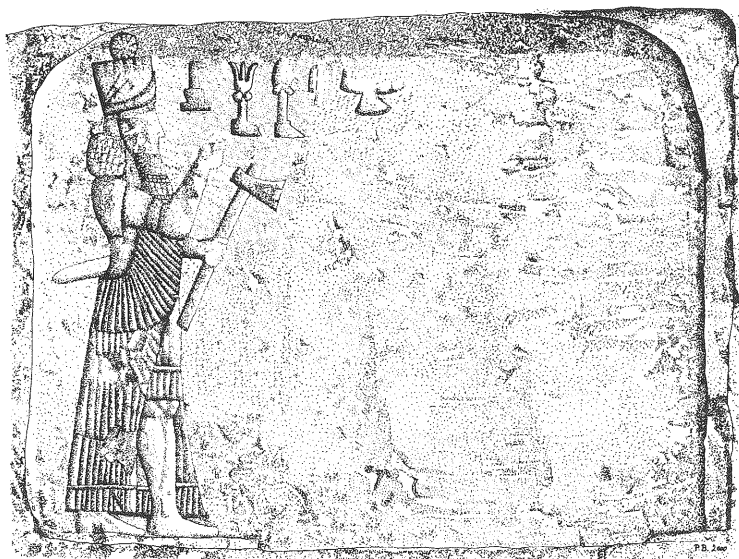 P.B. 2000